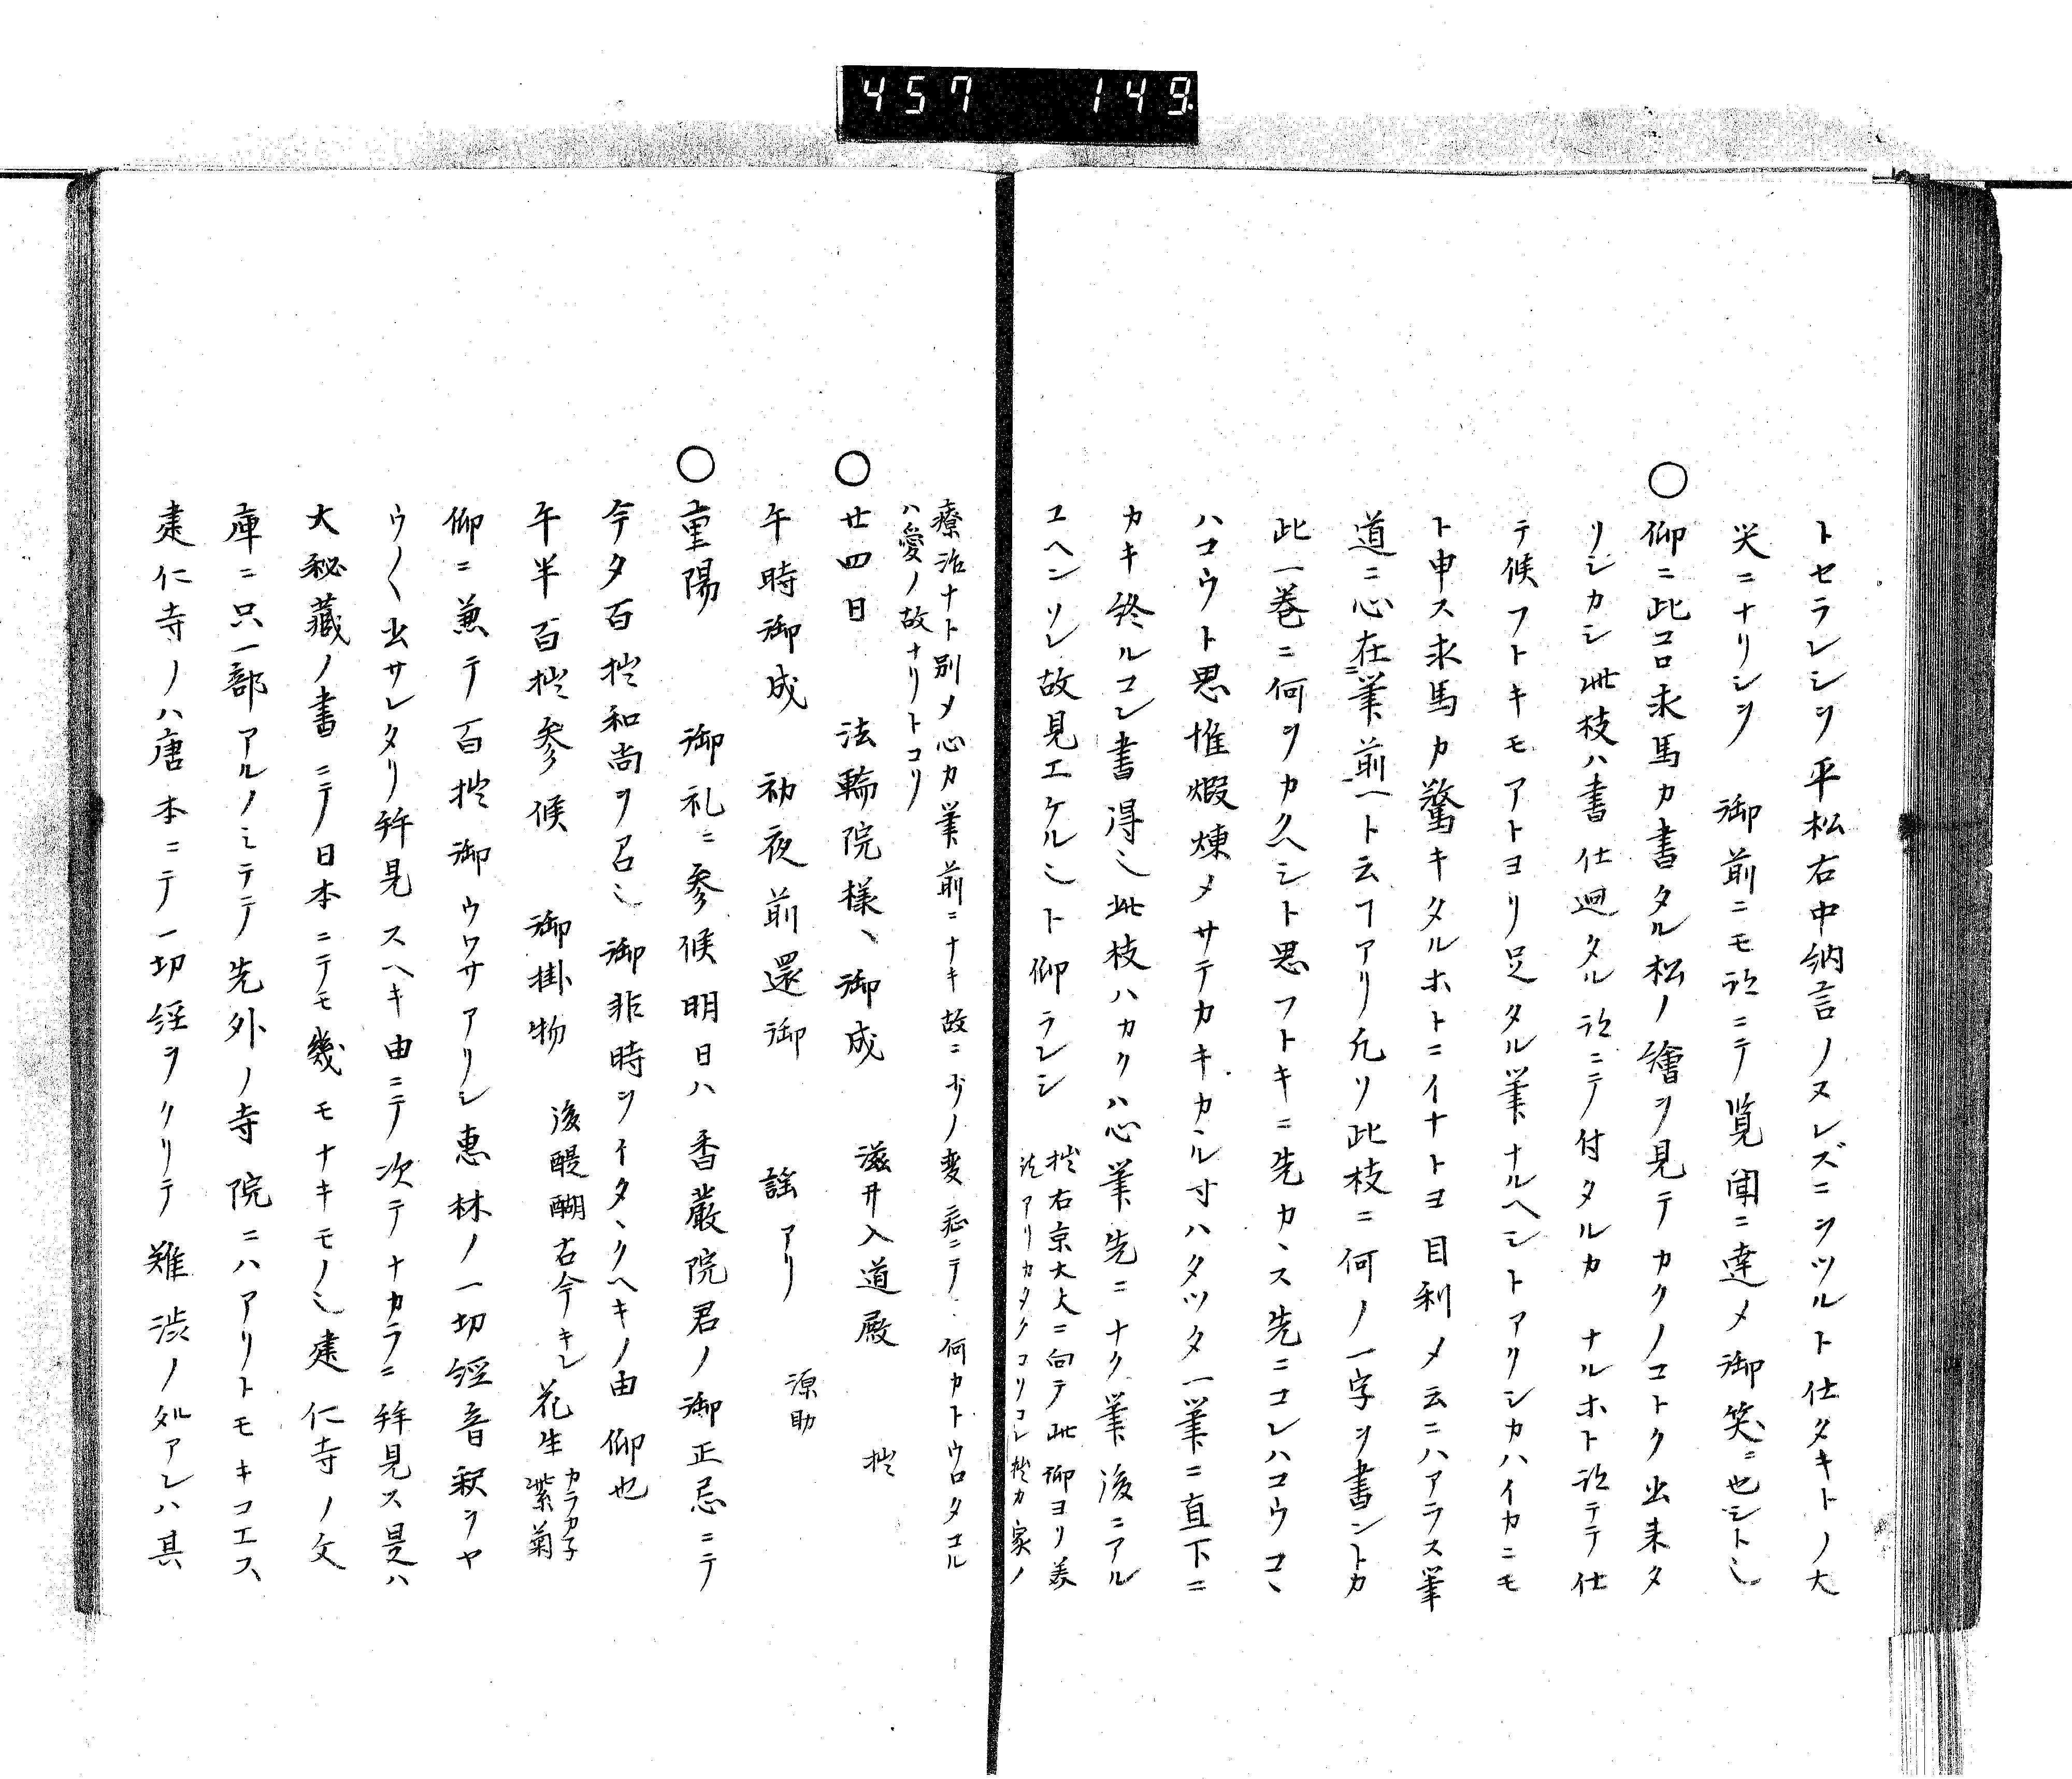 457 149
トセラレシヲ平松右中納言ノヌレズニヲツルト仕タキトノ大
笑ニナリシヲ 御前ニモ ニテ覧聞ニ達メ御笑ニ也シト
○仰ニ此コロ求馬カ書タル松ノ繪ヲ見テカクノコトク出来タ
リシカシ此枝ハ書仕廻タル ニテ付タルカ ナルホト テ仕
テ候フトキモアトヨリ足タル筆ナルヘシトアリシカハイカニモ
ト申ス求馬カ驚キタルホトニイナトヨ目利メ云ニハアラス筆
道ニ心在筆前ト云フアリ凡ソ此枝ニ何ノ一字ヲ書ントカ
此一巻ニ何ヲカクヘシト思フトキニ先カヽス先ニコレハコウコヽ
ハコウト思惟煅煉メサテカキカヽル寸ハタツタ一筆ニ直下ニ
カキ終ルコレ書得シ此枝ハカクハ心筆先ニナク筆後ニアル
ユヘソレ故見エケルシト仰ラレシ
右京大夫ニ向テ此御ヨリ
アリカタクコリコレ カ家ノ
療治ナト別メ心カ筆前ニナキ故ニ ノ変 ニテ何カトウロタユル
ハ愛ノ故ナリトコリ
○廿四日 法輪院様ヽ御成 滋井入道殿
午時御成 初夜前還御 謡アリ 源助
○重陽 御礼ニ参候明日ハ香嚴院君ノ御正忌ニテ
今夕百拙和尚ヲ召シ御非時ヲイタヽクヘキノ由仰也
午半百拙参候 御掛物 後醍醐古今キレ 花生 紫菊
仰ニ兼テ百拙御ウワサアリシ恵林ノ一切経音釈ヲヤ
ウ〳〵出サレタリ拝見スヘキ由ニテ次テナカラニ拝見ス是ハ
大秘藏ノ書ニテ日本ニテモ幾モナキモノシ建仁寺ノ文
庫ニ只一部アルノミテテ先外ノ寺院ニハアリトモキコエス
建仁寺ノハ唐本ニテ一切経ヲクリテ難渋ノ処アレハ其